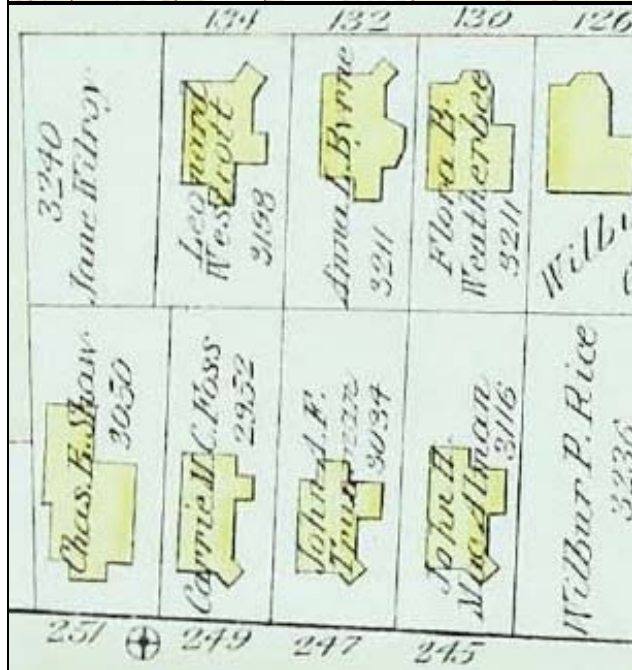 134 132 130 126
3240
Jane Kilroy
Leonard
Wescott
3198
Anna A. Byrne
3211
Flora B.
Weatherbee
3211
Wilbu
Chas. E. Shaw
3050
Carrie M. C. Foss
2952
John A. F.
Truman
3034
John H.
MacAlman
3116
Wilbur P. Rice
3236
251 249 247 245